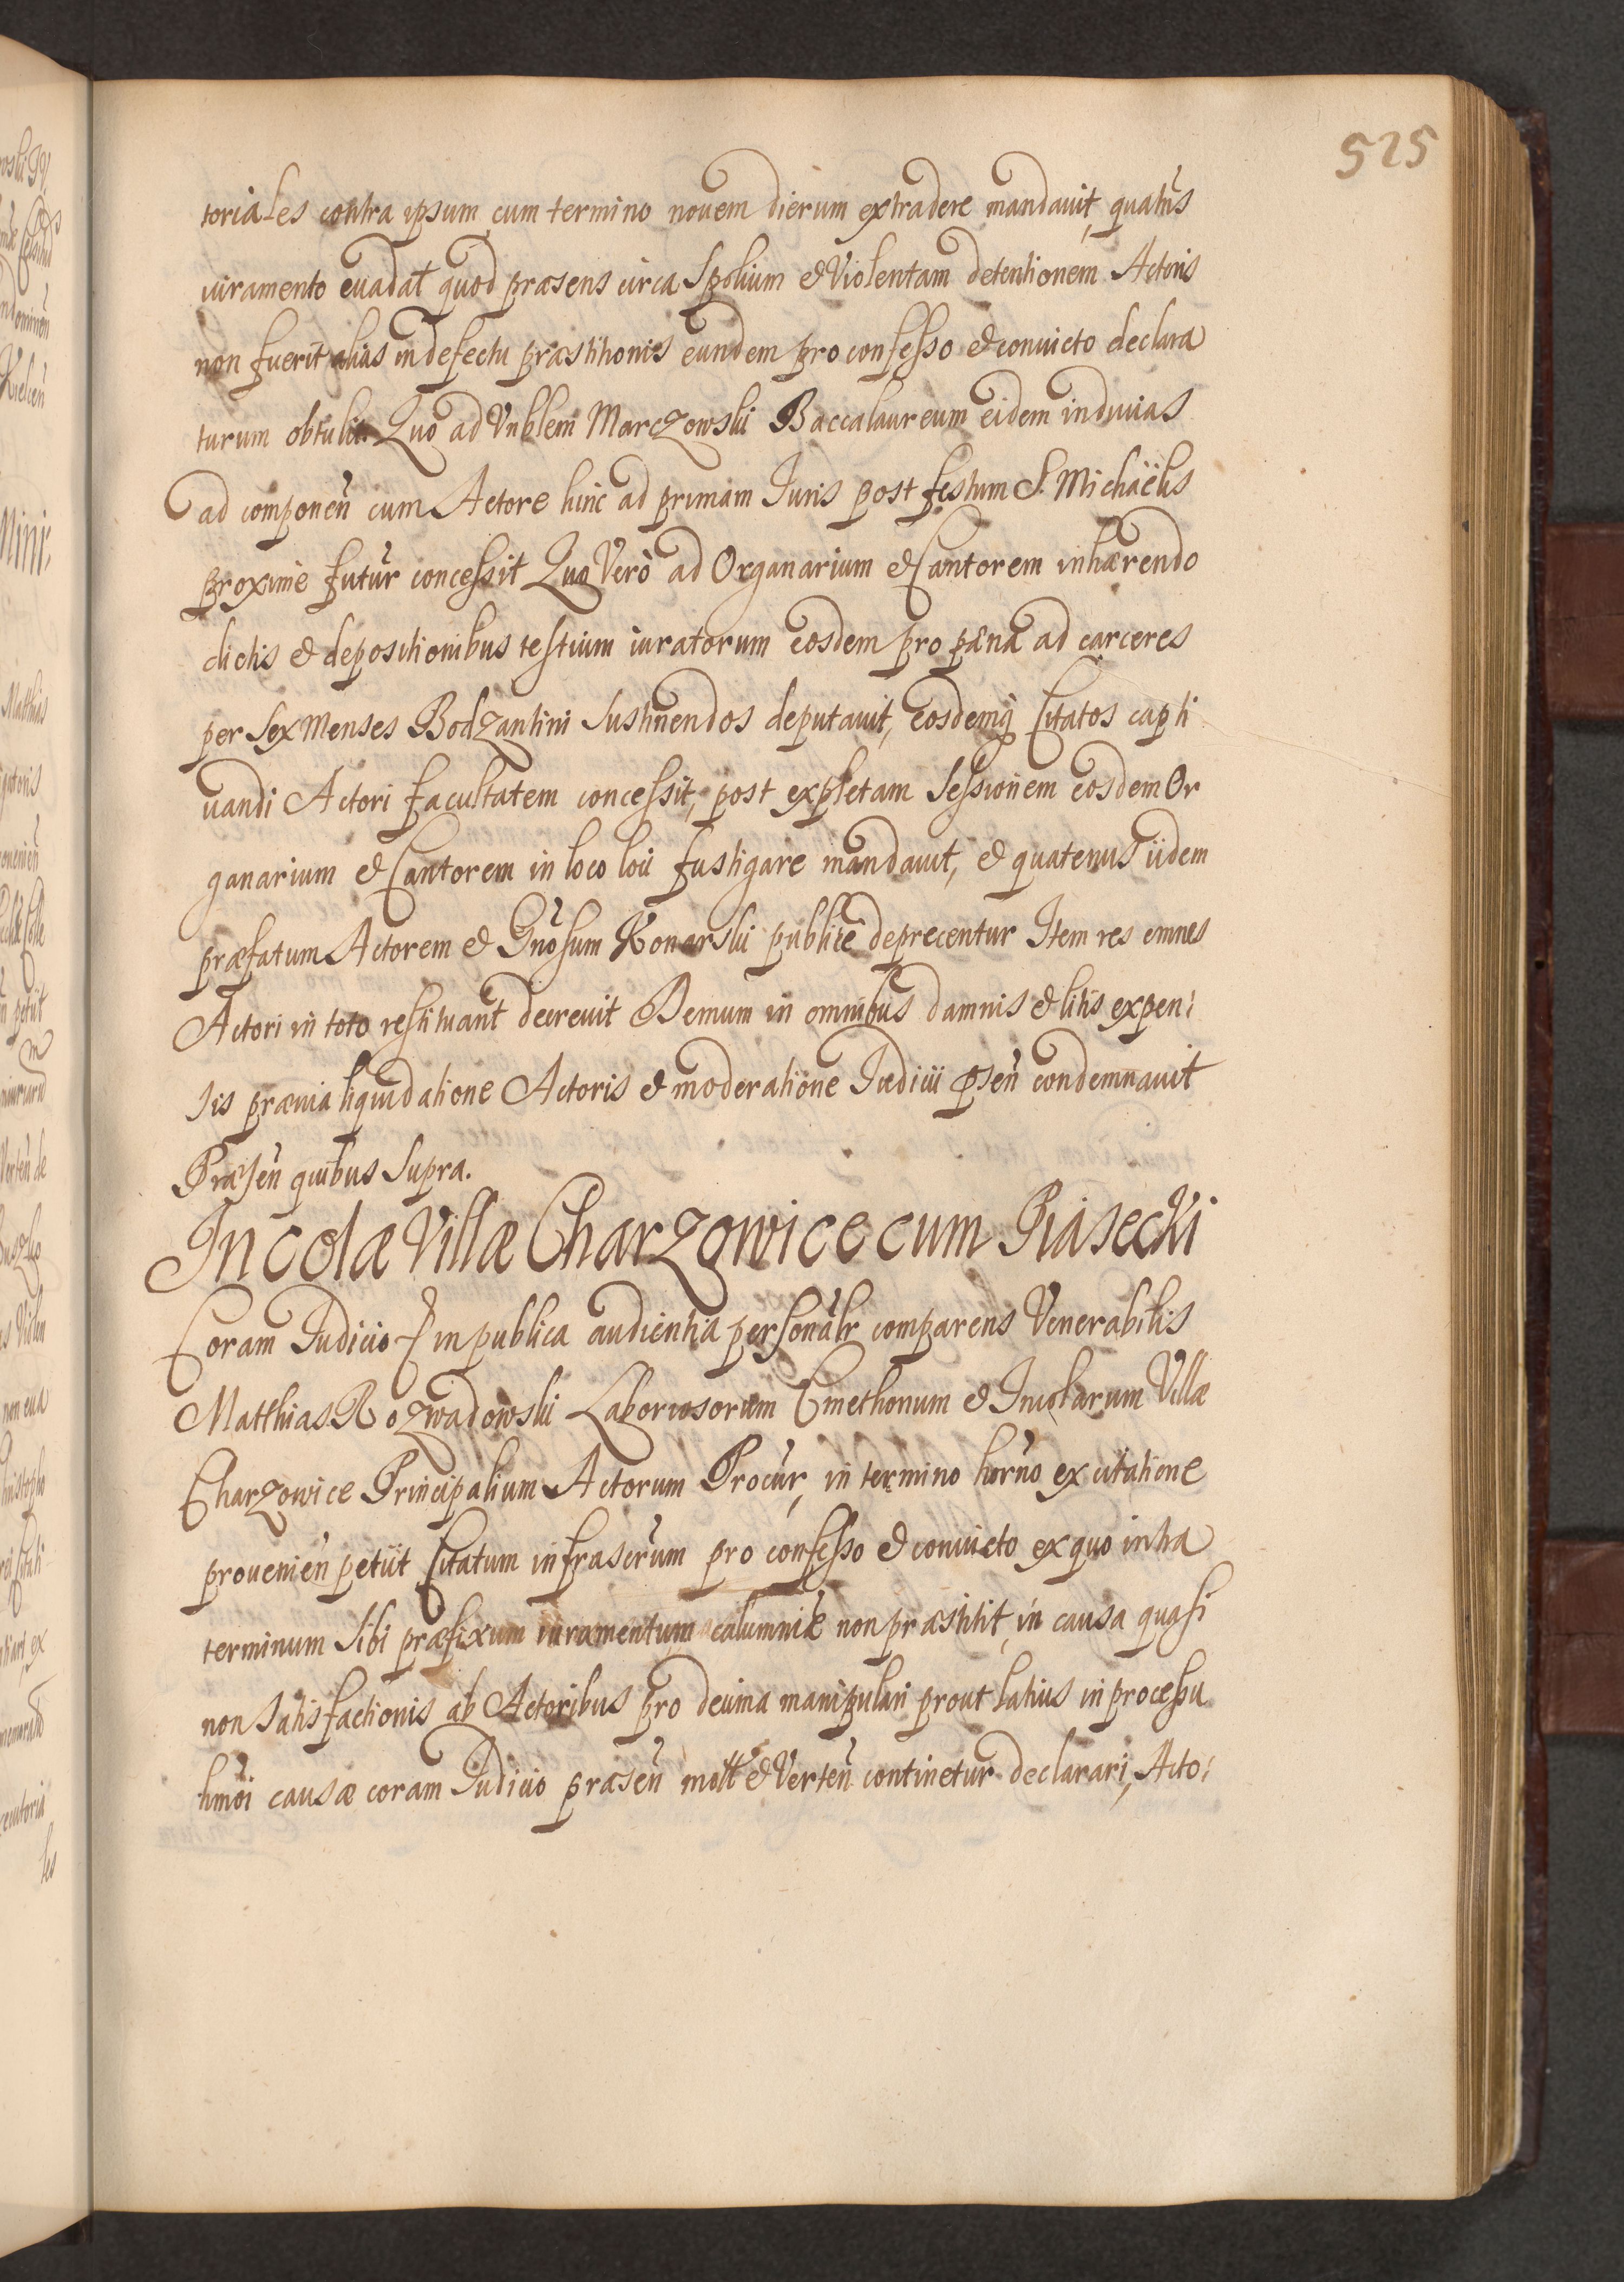 525
toriales contra ipsum cum termino nouem dierum extradere mandauit, quatñs
iuramento euadat quod præsens circa Spolium & Violentam detentionem Actoris
non fuerit alias in defectu præstitionis eundem pro confesso & conuicto declara
turum obtulit Quo ad Vnblem Marczowski Baccalaureum eidem inducias
ad componeñ cum Actore hinc ad primam Iuris post festum S. Michaëlis
proxime futur concessit Quo Verò ad Organarium & Cantorem inhærendo
dictis & depositionibus testium iuratorum eosdem pro pæna ad carceres
per Sex Menses Bodzantini Sustinendos deputauit, eosdemq Citatos capti
uandi Actori facultatem concessit, post expletam Sessionem eosdem Or
ganarium & Cantorem in loco loci fustigare mandauit, & quatenus iidem
præfatum Actorem & Gnosum Konarski publicè deprecentur Item res omnes
Actori in toto restituant decreuit Demum in omnibus damnis & litis expen:
sis præuia liquidatione Actoris & moderatione Iudicii pseñ condemnauit
Præseñ quibus Supra.
Incolæ Villæ Charzowice cum Piasecki
Coram Iudicio & in publica audientia personalr comparens Venerabilis
Matthias Rozwadowski Laboriosorum Cmethonum & Incolarum Villæ
Charzowice Principalium Actorum Procur, in termino horno ex citatione
prouenieñ petiit Citatum infrascrum pro confesso & conuicto ex quo intra
terminum Sibi præfixum iuramentum calumniæ non præstitit, in causa quasi
non Satisfactionis ab Actoribus pro decima manipulari prout latius in processu
hmoi causæ coram Iudicio præseñ mott & Verteñ continetur declarari, Acto: